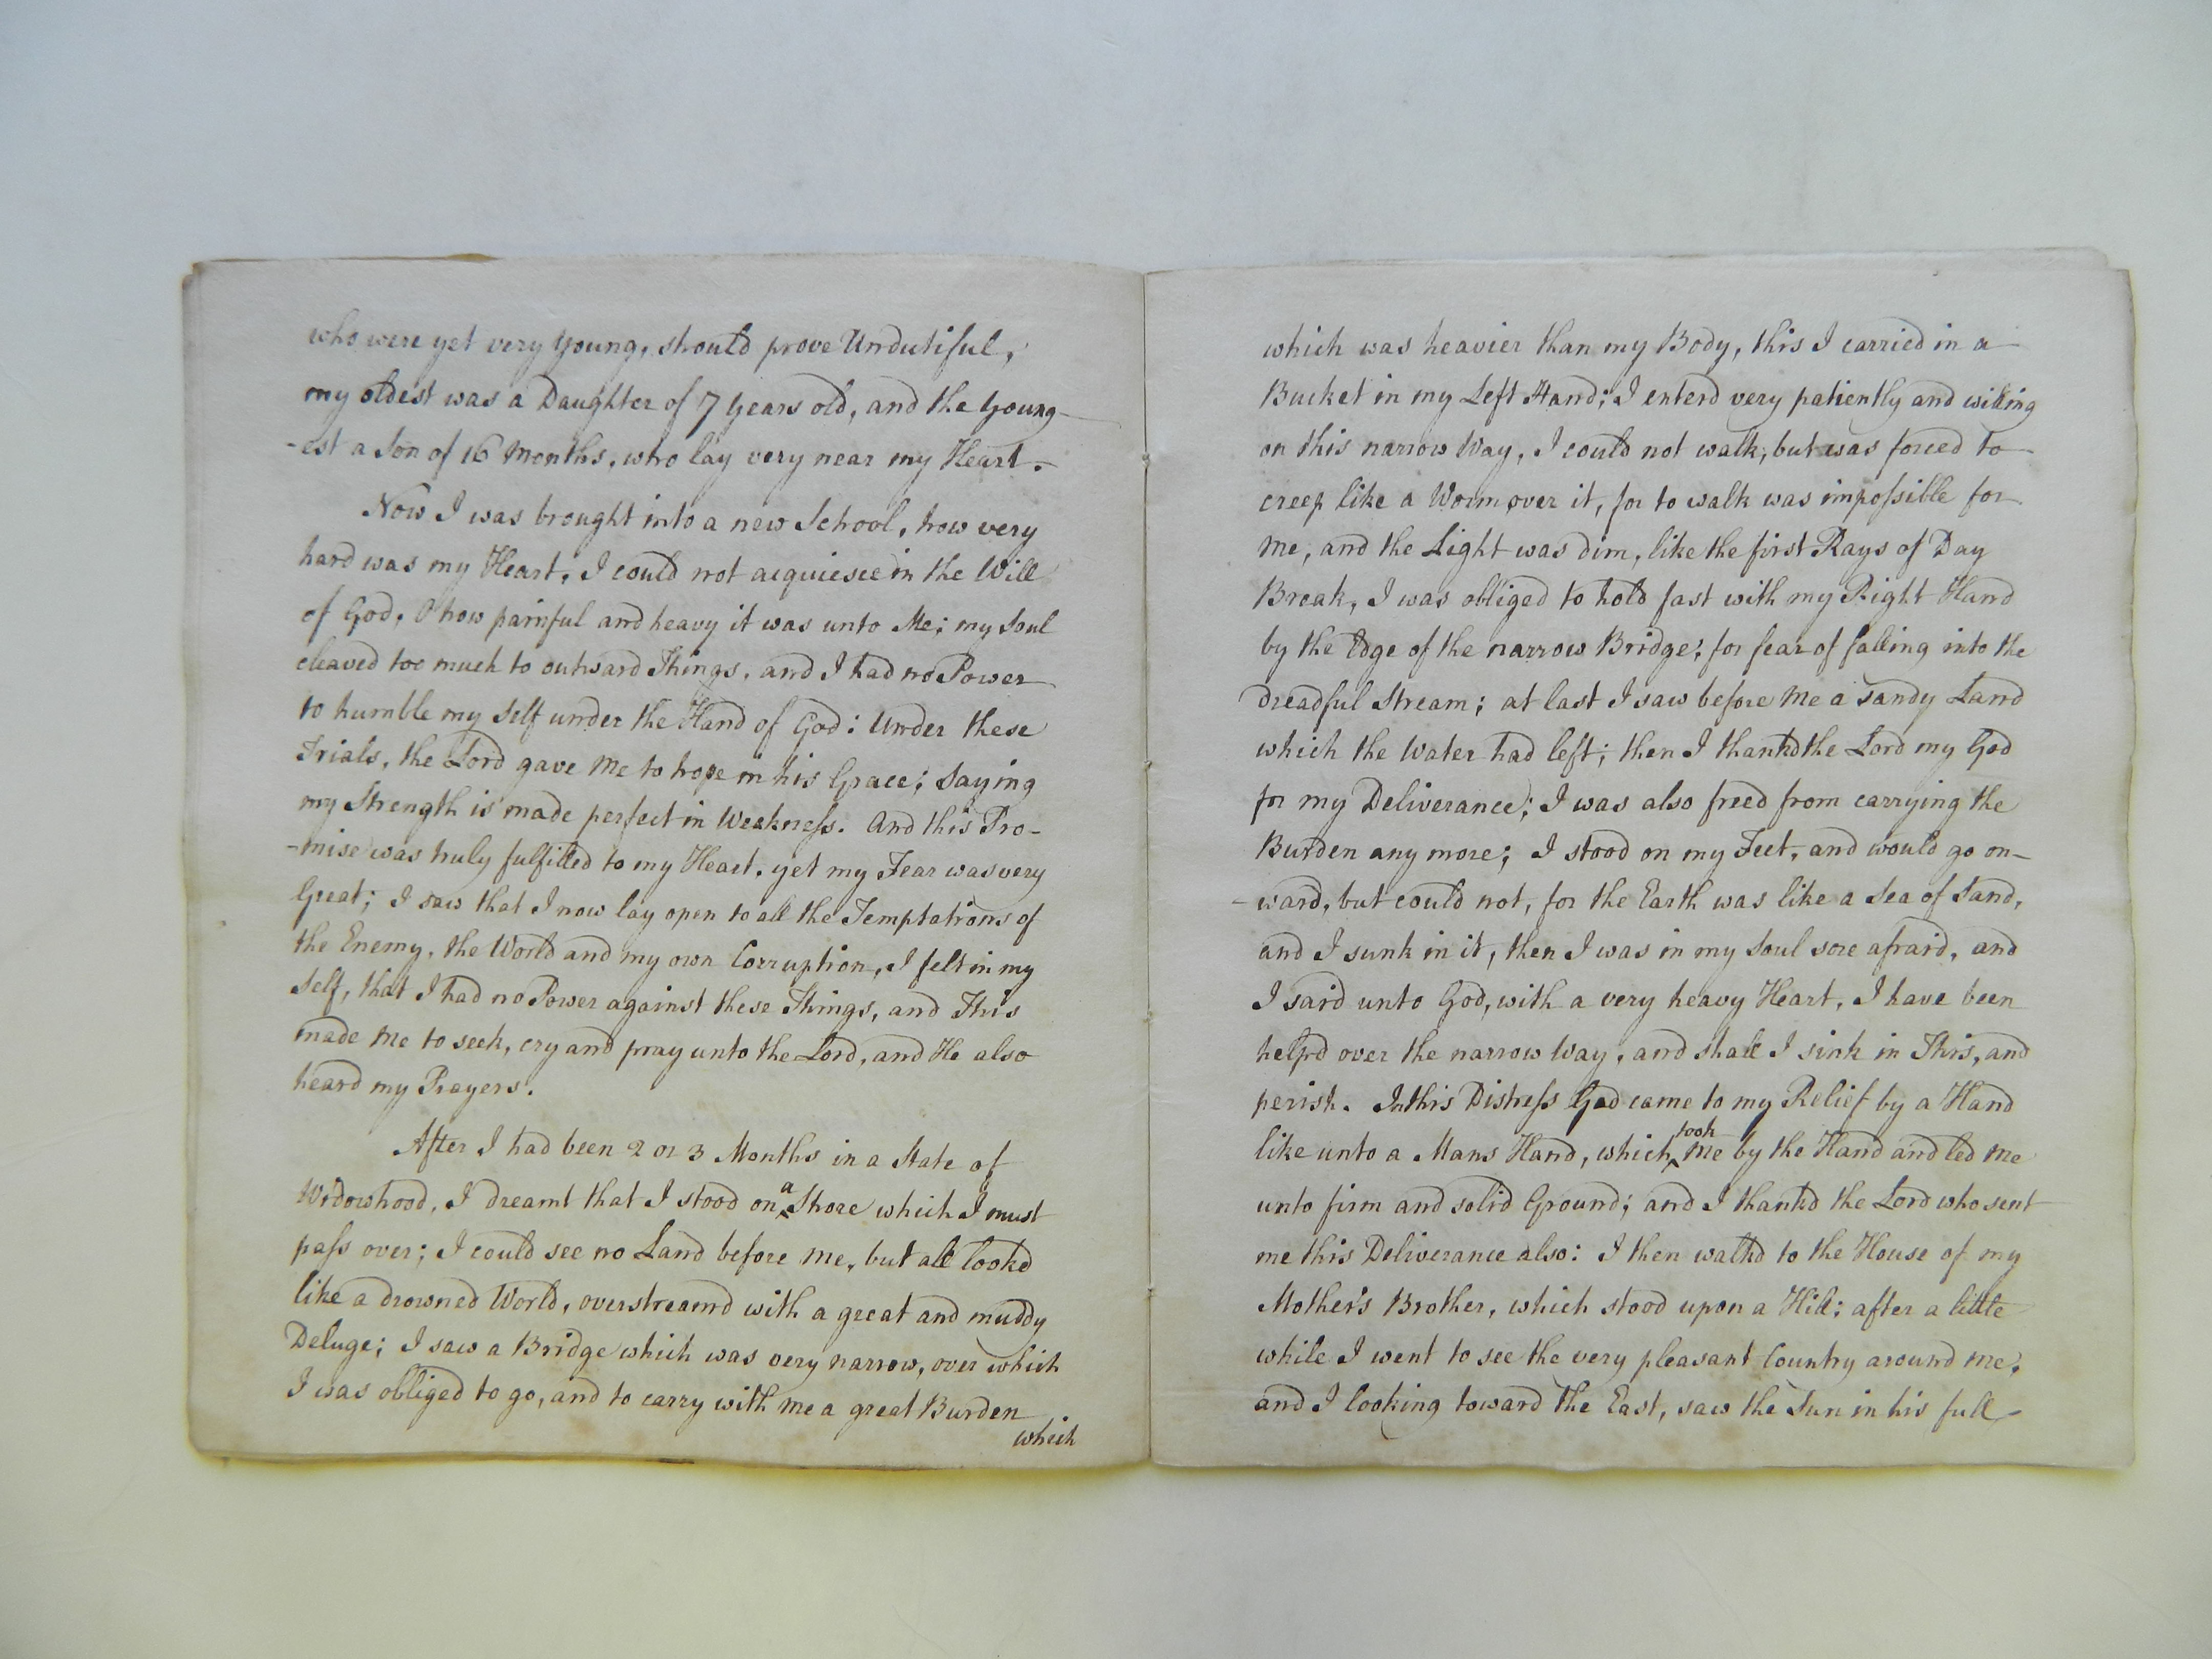 who were yet very young, should prove Undutiful,
my oldest was a Daughter of 7 Years old, and the young-
-est a Son of 16 Months, who lay very near my Heart.
Now I was brought into a new School, how very
hard was my Heart, I could not acquiesce in the Will
of God, O how painful and heavy it was unto Me; my Soul
cleaved too much to outward Things, and I had no Power
to humble my Self under the Hand of God: Under these
Trials, the Lord gave Me to hope in his Grace; Saying
my Strength is made perfect in Weakness. And this Pro-
-mise was truly fulfilled to my Heart, yet my Fear was very
Great; I saw that I now lay open to all the Temptations of
the Enemy, the World and my own Corruption, I felt in my
Self, that I had no Power against these Things, and This
made Me to seek, cry and pray unto the Lord, and He also
heard my Prayers.
After I had been 2 or 3 Months in a State of
Widowhood, I dreamt that I stood on a Shore which I must
pass over; I could see no Land before Me, but all look'd
like a drowned World, overstream'd with a great and muddy
Deluge; I saw a Bridge which was very narrow, over which
I was obliged to go, and to carry with Me a great Burden
which
which was heavier than my Body, this I carried in a
Bucket in my Left Hand; I enterd very patiently and willing
on this narrow Way, I could not walk, but was forced to
creep like a Worm over it, for to walk was impossible for
Me, and the Light was dim, like the first Rays of Day
Break, I was obliged to hold fast with my Right Hand
by the Edge of the narrow Bridge; for fear of falling into the
dreadful Stream; at last I saw before Me a Sandy Land
which the Water had left; then I thank'd the Lord my God
for my Deliverance; I was also freed from carrying the
Burden any more; I stood on my Feet, and would go on-
-ward, but could not, for the Earth was like a Sea of Sand,
and I sunk in it, then I was in my Soul sore afraid, and
I said unto God, with a very heavy Heart, I have been
help'd over the narrow Way, and shall I sink in This, and
perish. In this Distress God came to my Relief by a Hand
like unto a Mans Hand, which took Me by the Hand and led Me
unto firm and solid Ground; and I thank'd the Lord who sent
me this Deliverance also: I then walk'd to the House of my
Mother's Brother, which stood upon a Hill; after a little
while I went to see the very pleasant Country around Me,
and I looking toward the East, saw the Sun in his full